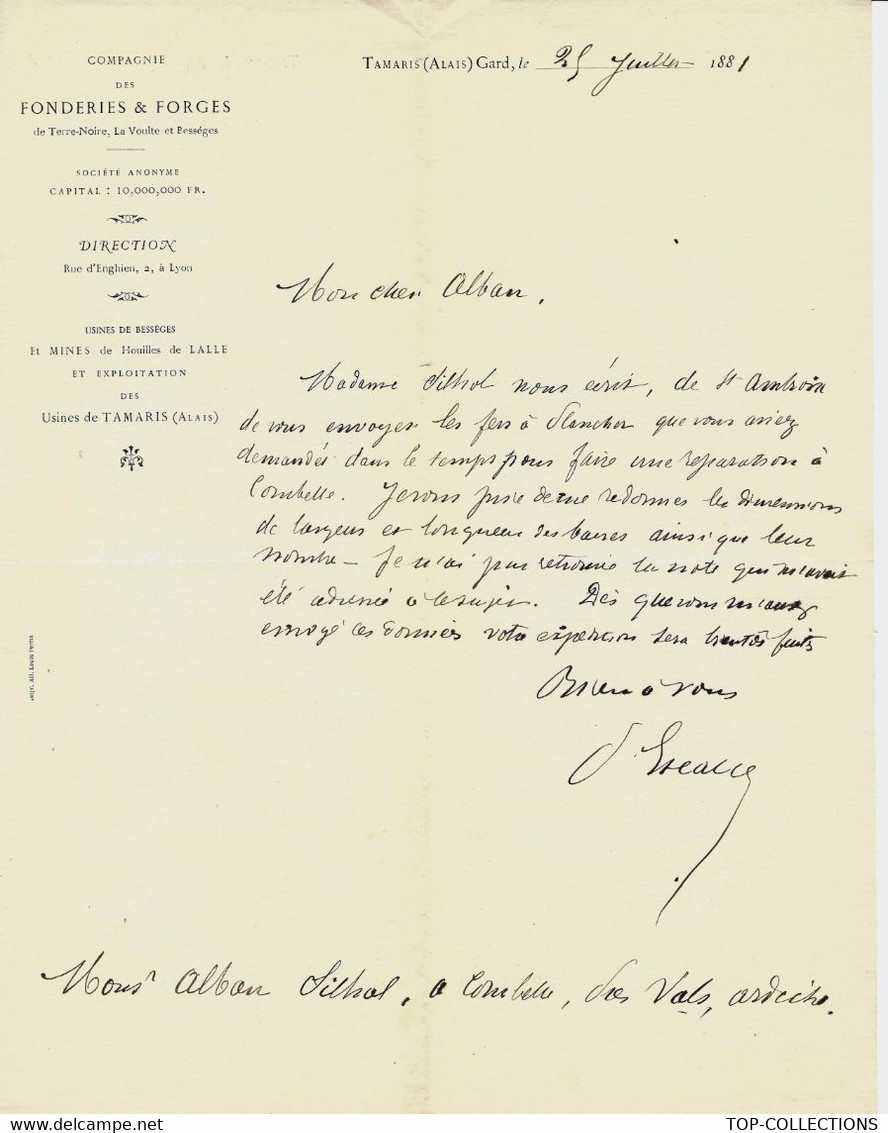 COMPAGNIE
DES
FONDERIES & FORGES
de Terre-Noire, La Voulte et Bességes
SOCIÉTÉ ANONYME
CAPITAL : 10,000,000 FR.
DIRECTION
Rue d'Enghien, 2, à Lyon
USINES DE BESSÉGES
Et MINES de Houilles de LALLE
ET EXPLOITATION
DES
Usines de TAMARIS (ALAIS)
TAMARIS (ALAIS) Gard, le 25 Juillet 1881
Mon cher Alban,
Madame Silhol nous écrit, de St Ambroix
de vous envoyer les fers à plancher que vous aviez
demandés dans le temps pour faire une reparation à
Combelle. Je vous prie de me redonner les dimensions
de largeur et longueur des barres ainsi que leur
nombre - Je n'ai pu retrouver la note qui m'avait
été adressée à ce sujet. Dès que vous m'aurez
envoyé ces données votre expédition sera bientôt faite
Bien à vous
Mons. Alban Silhol, a Combelle, près Vals, ardeche.
Lyon, Alf. Louis Perrin
TOP-COLLECTIONS